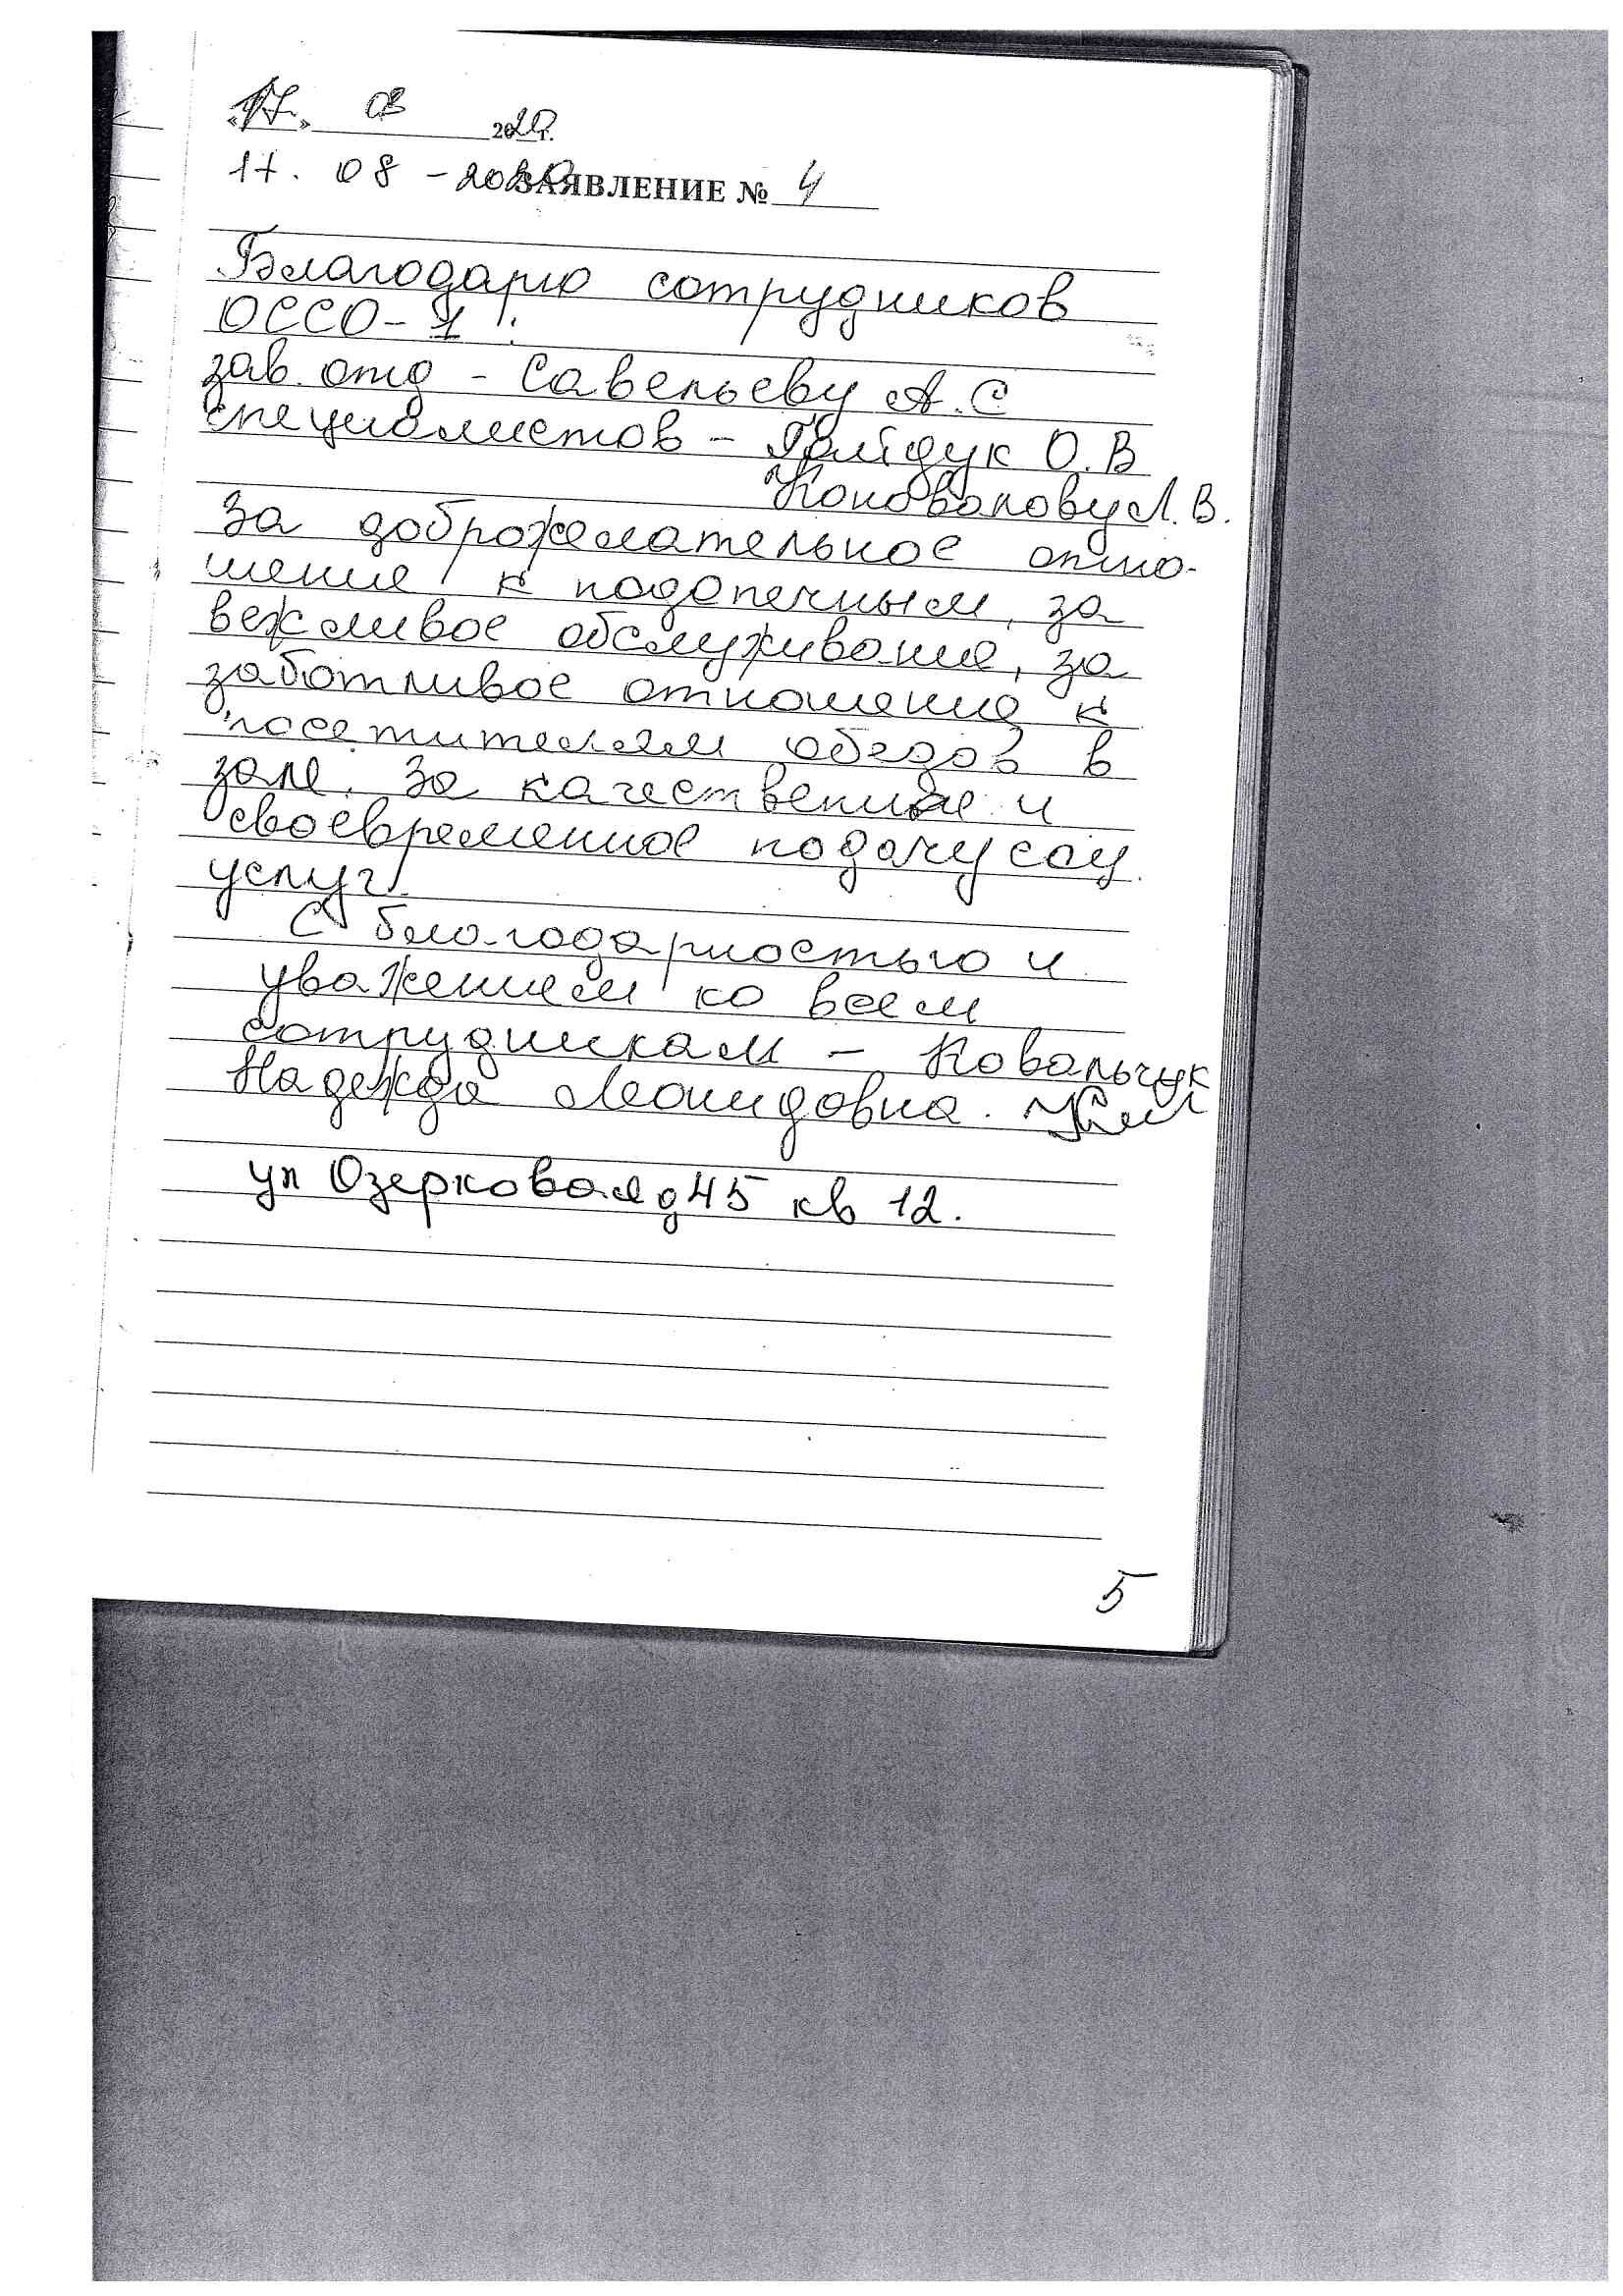 «17» 08 2020г.
17. 08 - 2020 ЗАЯВЛЕНИЕ № 4
Благодарю сотрудников
ОССО-1:
зав. отд - Савельеву А.С
специалистов - Гайдук О.В
Коновалову Л.В.
За доброжелательное отно-
шение к подопечным, за
вежливое обслуживание, за
заботливое отношение к
посетителям обедов в
зале. За качественное и
своевременное подачу соц.
услуг.
С благодарностью и
уважением ко всем
сотрудникам - Ковальчук
Надежда Леонидовна.
ул Озерковая д 45 кв 12.
5